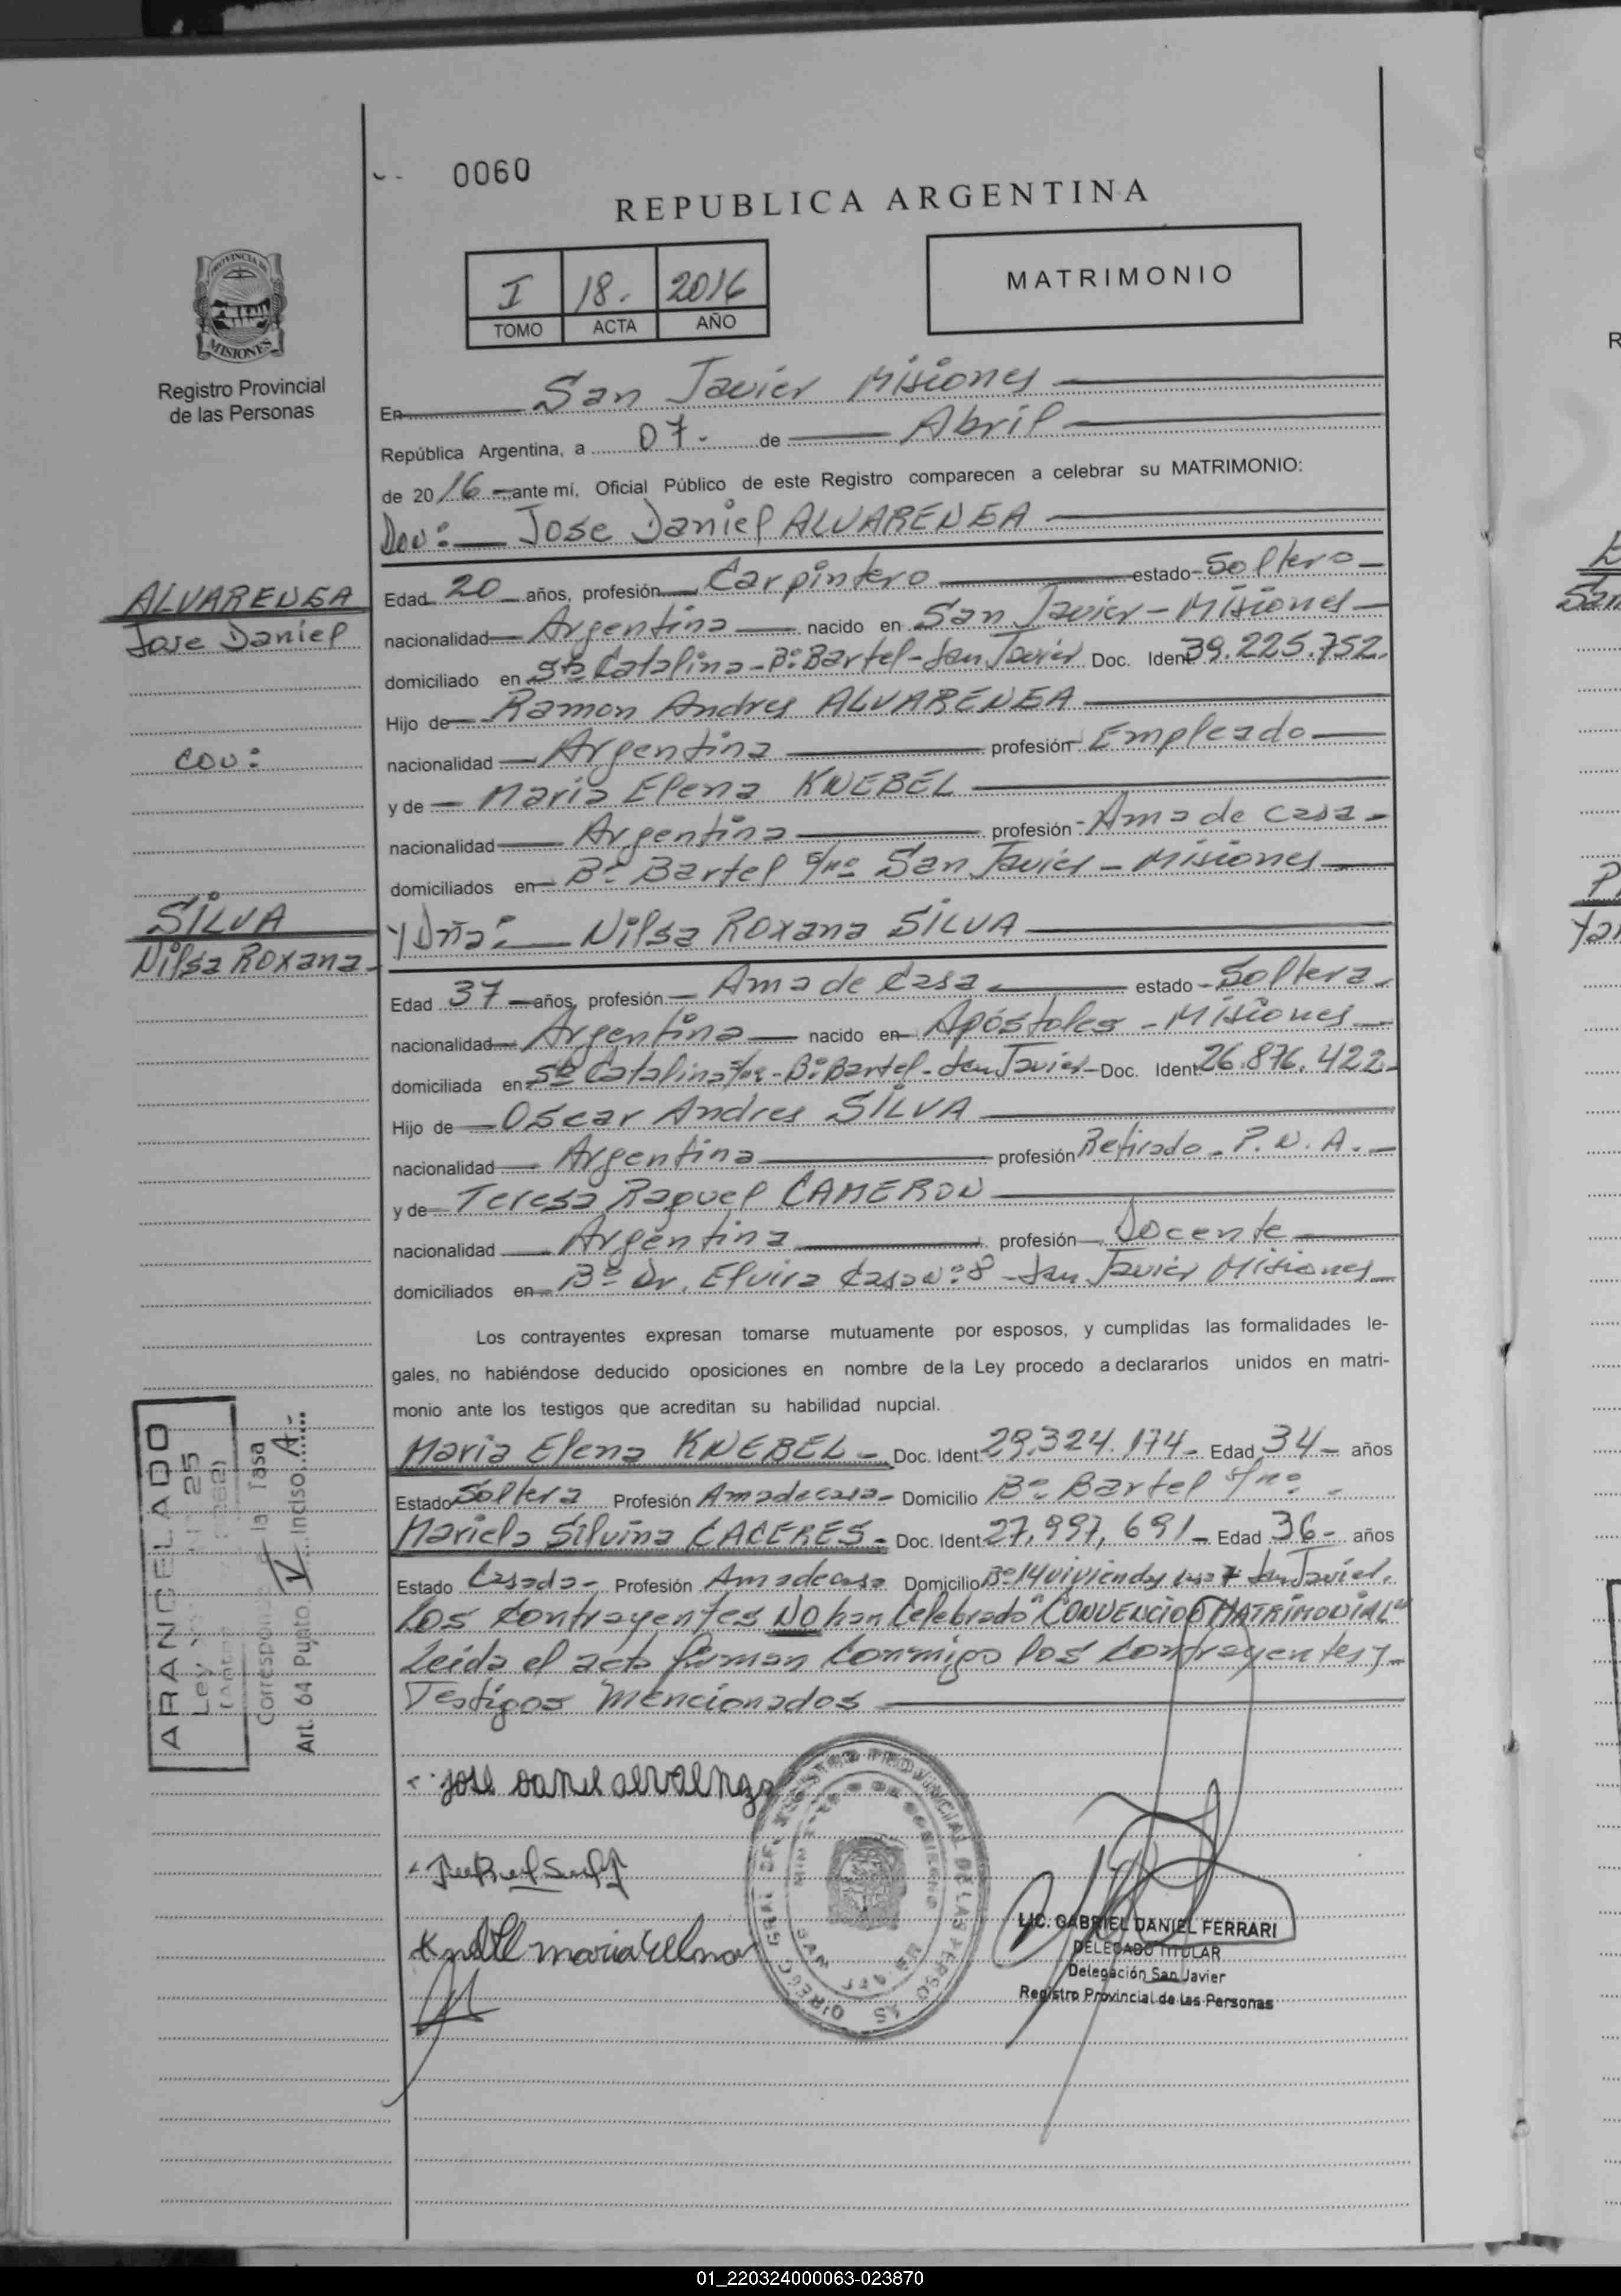 0060
REPUBLICA ARGENTINA
PROVINCIA DE
MISIONES
Registro Provincial
de las Personas
I 18. 2016
TOMO ACTA AÑO
MATRIMONIO
En San Javier Misiones
República Argentina, a 07. de Abril
de 2016 ante mí, Oficial Público de este Registro comparecen a celebrar su MATRIMONIO:
Don: Jose Daniel ALVARENGA
ALVARENGA
Jose Daniel
con:
SILVA
Nilsa Roxana
Edad 20 años, profesión Carpintero estado Soltero
nacionalidad Argentina nacido en San Javier - Misiones
domiciliado en Sta Catalina - Bº Bartel - San Javier Doc. Ident 39.225.752.
Hijo de Ramon Andres ALVARENGA
nacionalidad Argentina profesión Empleado
y de Maria Elena KNEBEL
nacionalidad Argentina profesión Ama de casa
domiciliados en Bº Bartel s/nº San Javier - Misiones
y Dña: Nilsa Roxana SILVA
Edad 37 años, profesión Ama de Casa estado Soltera
nacionalidad Argentina nacido en Apóstoles - Misiones
domiciliada en Sta Catalina s/nº - Bº Bartel - San Javier Doc. Ident 26.876.422
Hijo de Oscar Andres SILVA
nacionalidad Argentina profesión Retirado - P.N.A.
y de Teresa Raquel CAMERON
nacionalidad Argentina profesión Docente
domiciliados en Bº Dr. Elvira Casa Nº 8 - San Javier Misiones
Los contrayentes expresan tomarse mutuamente por esposos, y cumplidas las formalidades le-
gales, no habiéndose deducido oposiciones en nombre de la Ley procedo a declararlos unidos en matri-
monio ante los testigos que acreditan su habilidad nupcial.
Maria Elena KNEBEL - Doc. Ident 29.324.174 - Edad 34 - años
Estado Soltera Profesión Ama de casa - Domicilio Bº Bartel s/nº -
Mariela Silvina CACERES - Doc. Ident 27.997.691 - Edad 36 - años
Estado Casada - Profesión Ama de casa Domicilio Bº 14 viviendas 7 San Javier.
Los contrayentes NO han Celebrado "CONVENCION MATRIMONIAL"
Leida el acta firman conmigo los contrayentes y
Testigos mencionados
ARANCELADO
Ley 25
Corresponde la Tasa
Art. 64 Punto V Inciso A
Jose Daniel Alvarenga
Knebel maria Elena
LIC. GABRIEL DANIEL FERRARI
DELEGADO TITULAR
Delegación San Javier
Registro Provincial de las Personas
01_220324000063-023870